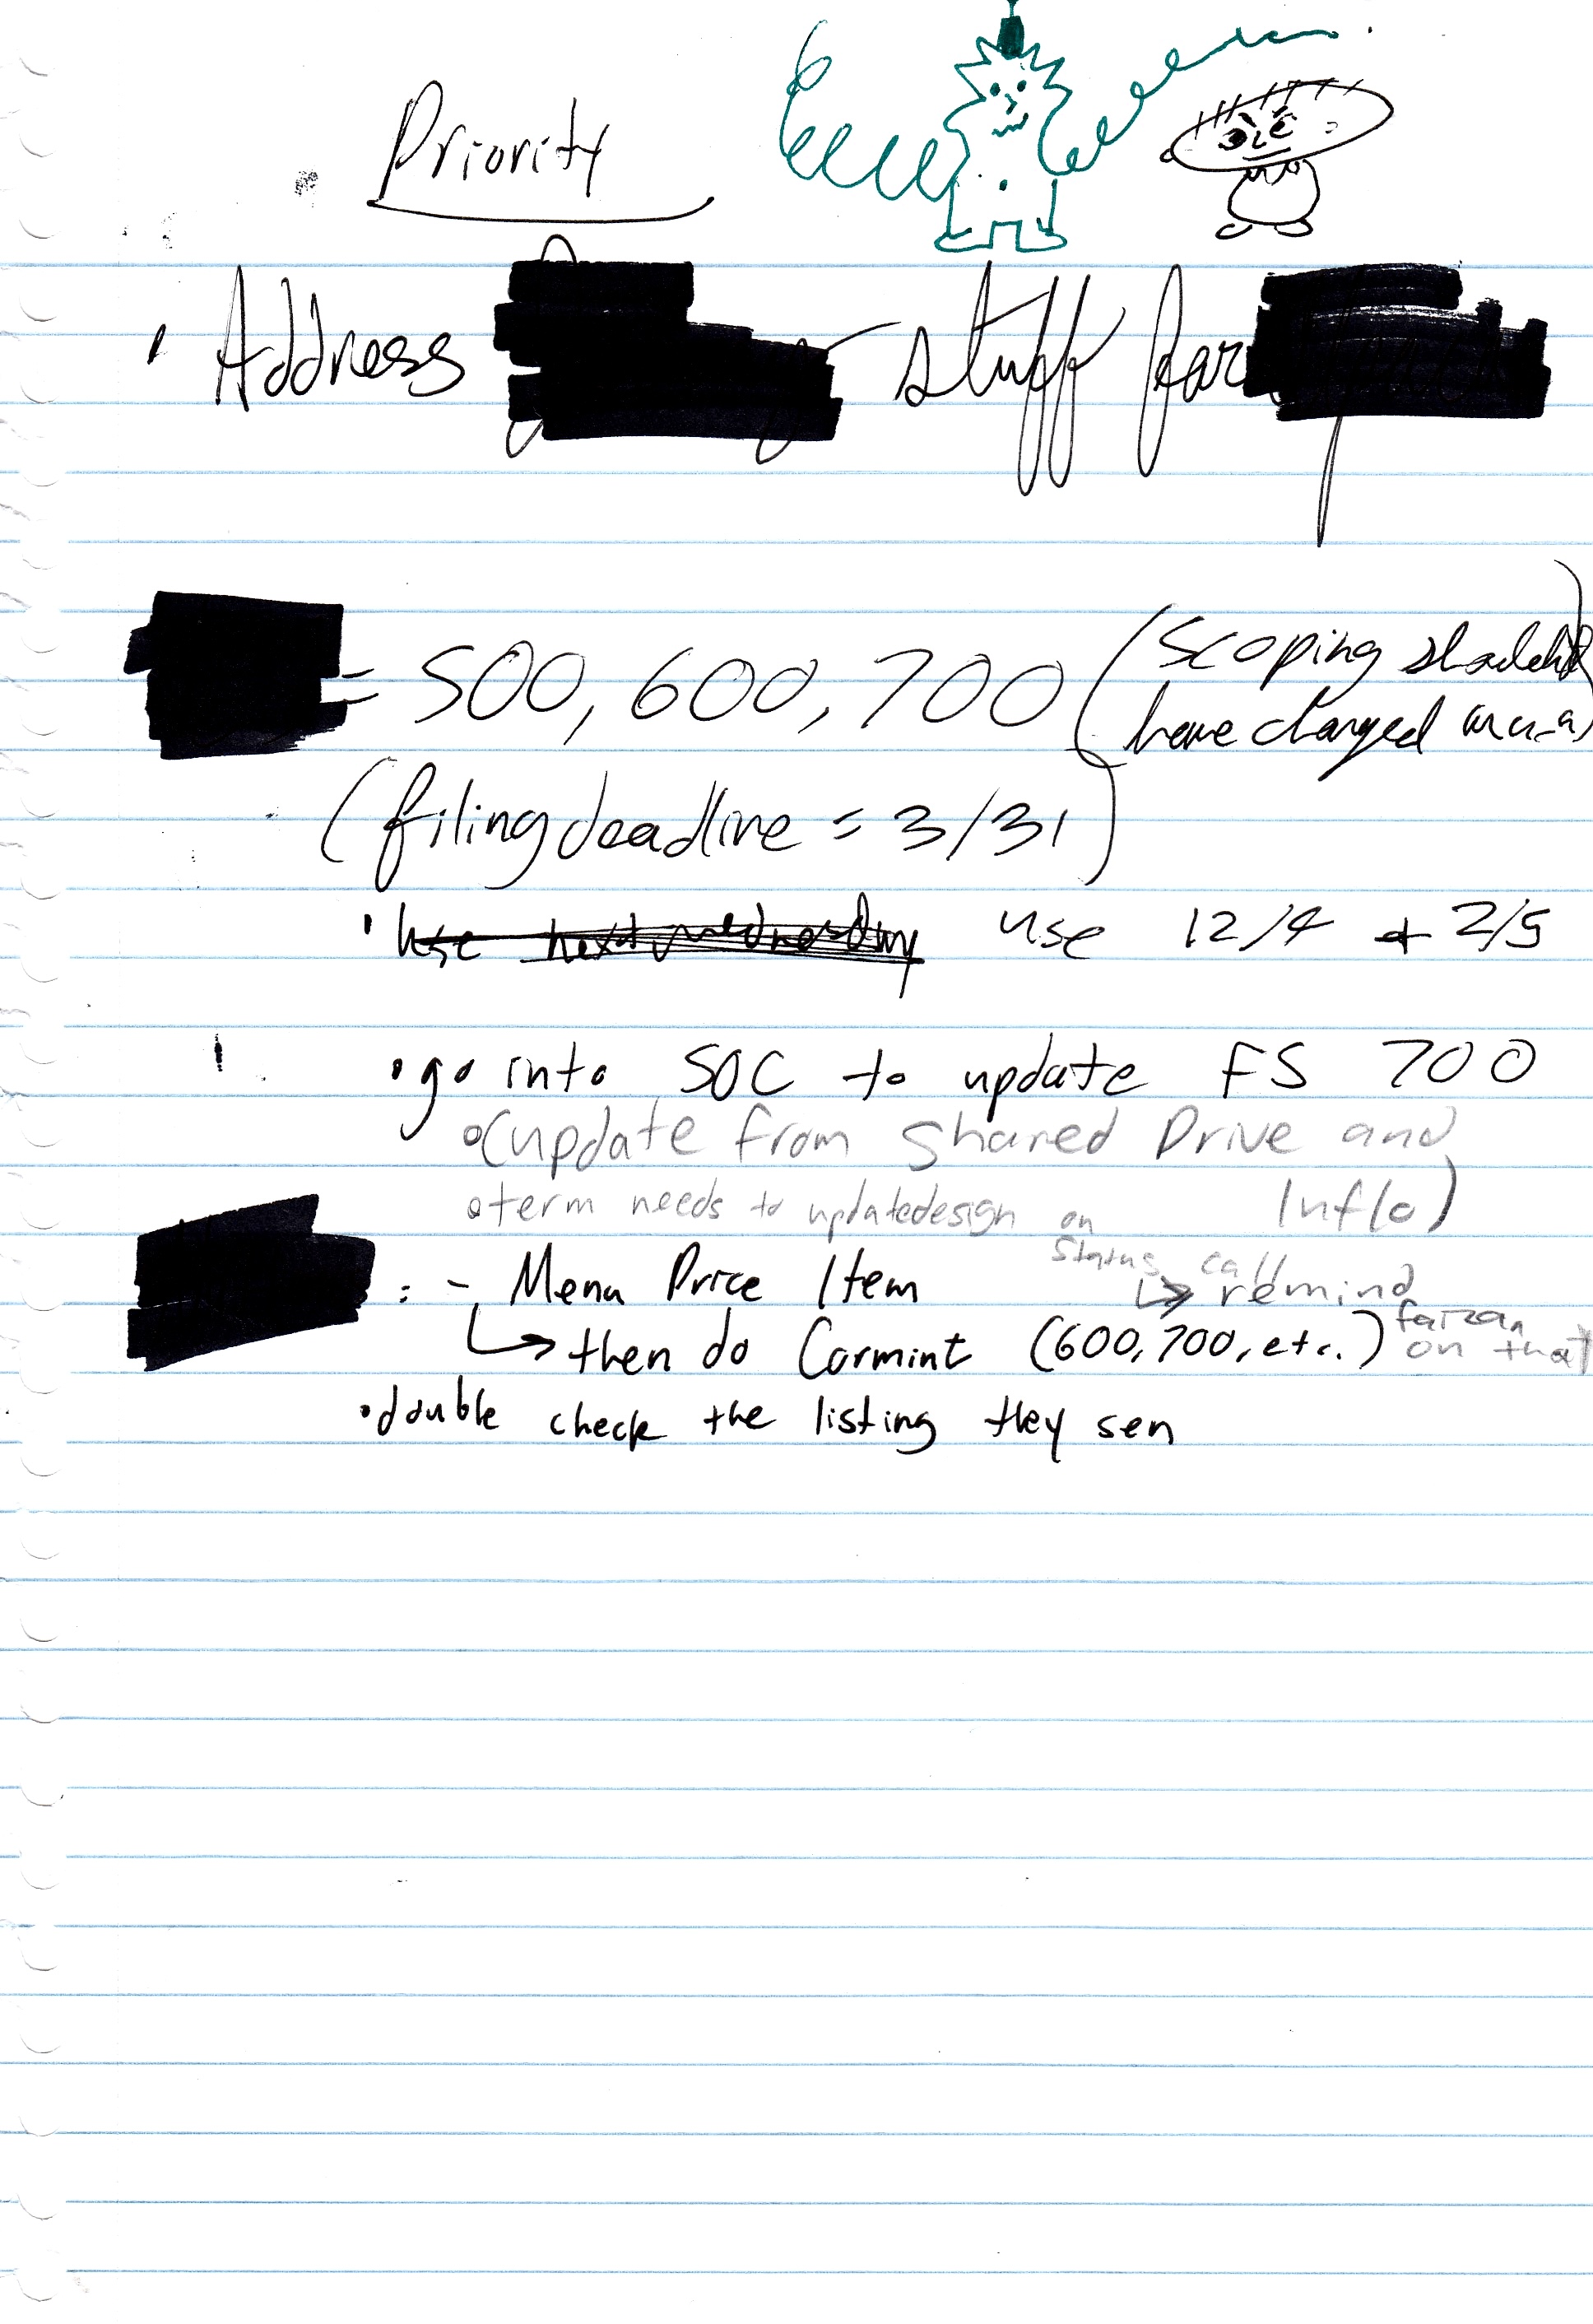 Priority
• Address stuff for
= 500, 600, 700 (Scoping
have changed
(filing deadline = 3/31)
• use next wednesday use 12/4 + 2/5
• go into SOC to update FS 700
(update from Shared Drive and
Inflo)
term needs to update design on
status call
↳ remind
faizan
on that
: - Menu Price Item
↳ then do Carmint (600, 700, etc.)
• double check the listing they sen